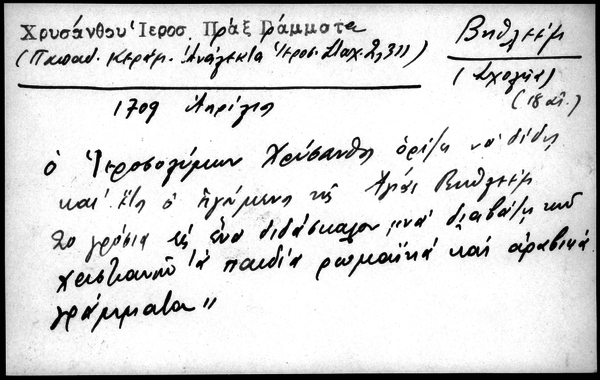 Χρυσάνθου Ιεροσ. Πράξ Γράμματα
Βηθλεέμ
(Παπαδ. Κεραμ. Ανάλεκτα Ιεροσ. Σταχ. 2, 311)
(Σχολεία)
(18 αἰ.)
1709 Απρίλιος
ὁ Ἱεροσολύμων Χρύσανθος ὁρίζει νά δίδῃ
κατ' ἔτος ὁ ἡγούμενος τῆς Ἁγίας Βηθλεέμ
20 γρόσια εἰς ἕνα διδάσκαλον „νά διαβάζῃ τῶν
χριστιανῶν τά παιδία ρωμαϊκά καί ἀραβικά
γράμματα"